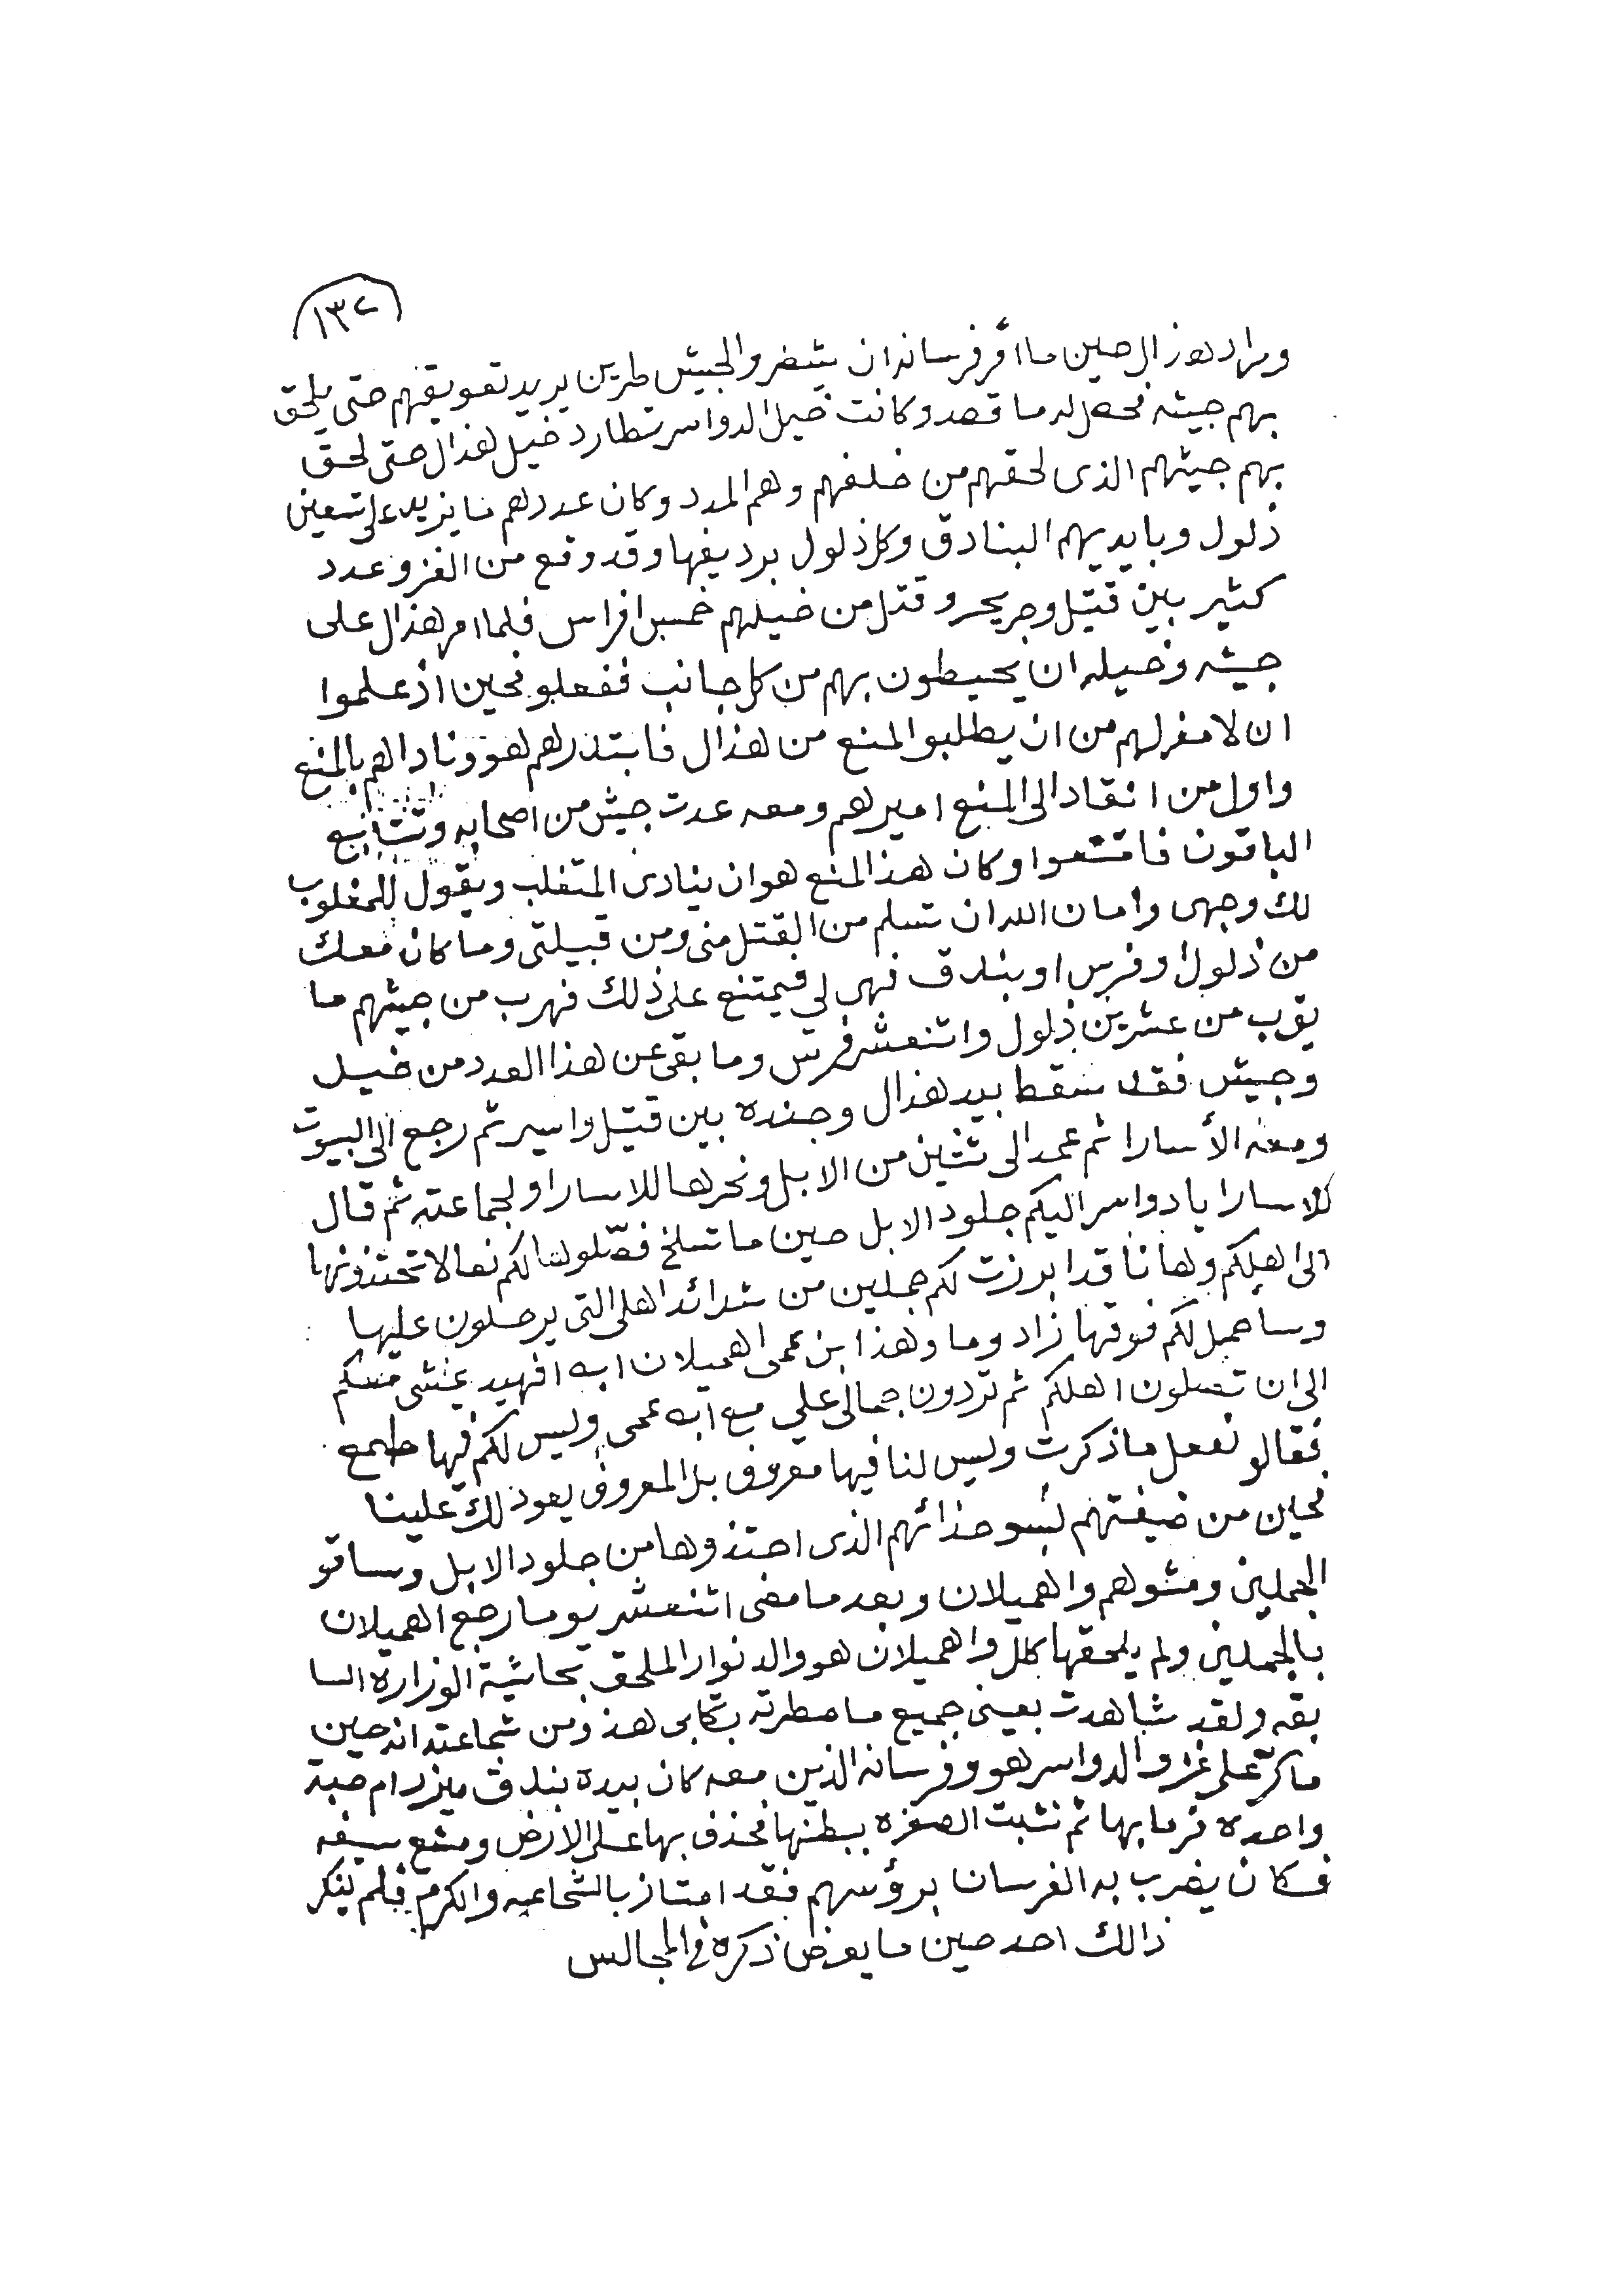 ١٣٧
ومراد هزال حين ما أقر فرسانه ان يشضر والجيش طرين يريد تعويقهم حتى يلحق
بهم جيشه فحصل له ما قصد وكانت خيل الدواسر تطارد خيل هذال حتى لحق
بهم جيشهم الذى لحقهم من خلفهم وهم المدد وكان عددهم ما يزيد على تسعين
ذلول وبايديهم البنادق وكل ذلول برديفها وقد وقع من الغزو عدد
كثير بين قتيل وجريح وقتل من خيلهم خمس افراس فلما امر هذال على
جيشه وخيله ان يحيطون بهم من كل جانب ففعلو فحين اذ علموا
ان لا مفر لهم من ان يطلبوا المنع من هذال فابتدرهم هو وناداهم بالمنع
واول من انقاد الى المنع اميرهم ومعه عدت جيش من اصحابه وتتابع
الباقون فامتنعوا وكان هذا المنع هو ان ينادى المتغلب ويقول للمغلوب
لك وجهى وامان الله ان تسلم من القتل منى ومن قبيلتى وما كان معك
من ذلول او فرس او بندق فهى لي فيمتنع على ذلك فهرب من جيشهم ما
يقرب من عشرين ذلول واثنعشر فرس وما بقى عن هذا العدد من خيل
وجيش فقد سقط بيد هذال وجنده بين قتيل واسير ثم رجع الى البيوت
ومعه الأسارا ثم عمد الى ثنتين من الابل ونحرها للاسارا ولجماعته ثم قال
للاسارا يا دواسر اليكم جلود الابل حين ما تسلخ فصّلوها لكم نعالا تحتذونها
الى اهلكم وها نا قد ابرزت لكم جملين من شدائد اهلى التى يرحلون عليها
وساحمل لكم فوقها زاد وما وهذا ابن عمى الهميلان ابه افهيد يمشى معكم
الى ان تصلون اهلكم ثم تردون جمالى علي مع ابه عمى وليس لكم فيها طمع
فقالو نفعل ما ذكرت وليس لنا فيها معروف بل المعروف يعود لك علينا
فحين من ضيفتهم لبسو حذائهم الذى احتذوها من جلود الابل وساقو
الجملين ومشوهم والهميلان وبعد ما مضى اثنعشر يوما رجع الهميلان
بالجملين ولم يلحقها كلل والهميلان هو والد نوار الملحق بحاشية الوزارة السا
بقه ولقد شاهدت بعينى جميع ما سطرته بكتابى هذ ومن شجاعته انه حين
ما كرّ على غزو الدواسر هو وفرسانه الذين معه كان بيده بندق ميزر ام حبة
واحده فرما بها ثم نشبت الصفره ببطنها فحذف بها على الارض ومشع سيفه
فكان يضرب به الفرسان برؤسهم فقد امتاز بالشجاعه والكرم فلم ينكر
ذالك احد حين ما يعرض ذكره في المجالس